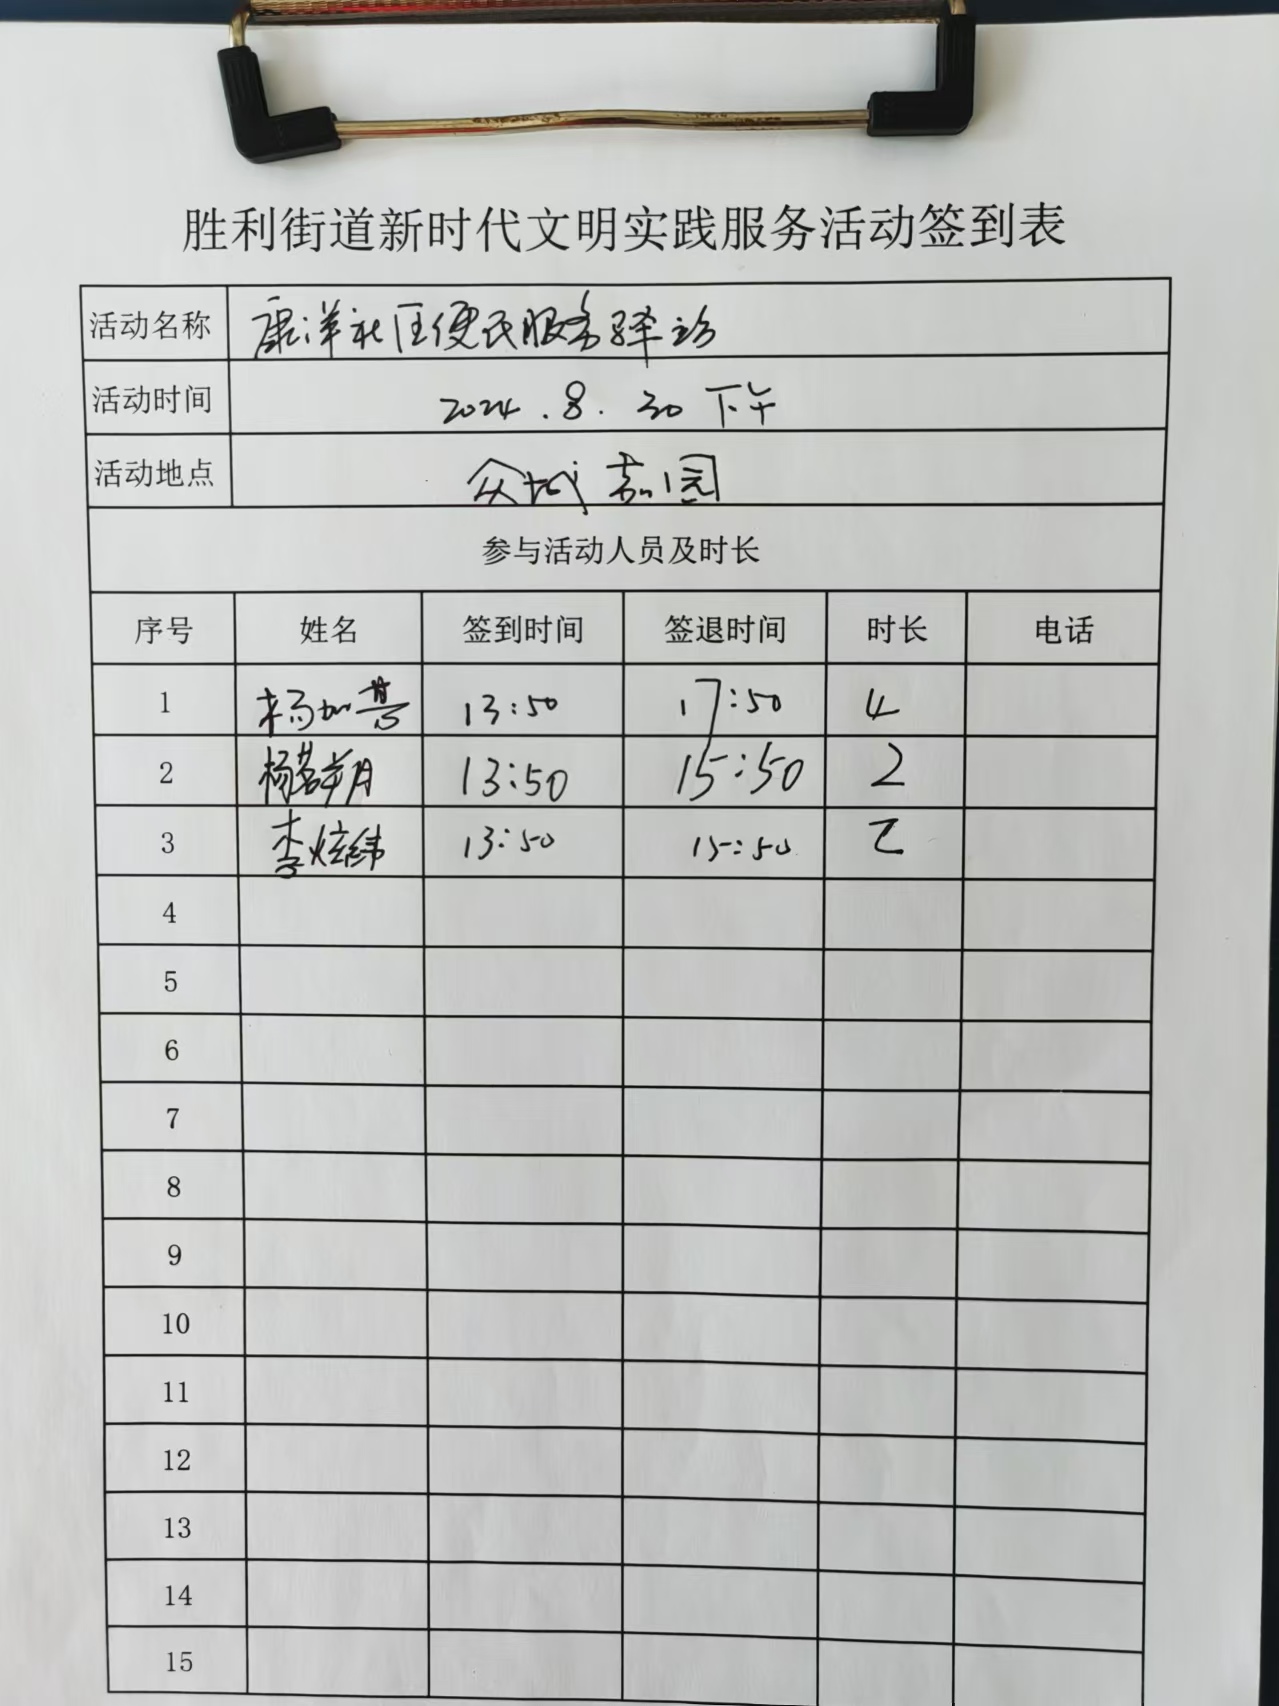 胜利街道新时代文明实践服务活动签到表
活动名称 康洋社区便民服务驿站
活动时间 2024.8.30 下午
活动地点 众城嘉园
参与活动人员及时长
序号 姓名 签到时间 签退时间 时长 电话
1 杨加慧 13:50 17:50 4
2 杨茗朔 13:50 15:50 2
3 李炫纬 13:50 15:50 2
4
5
6
7
8
9
10
11
12
13
14
15